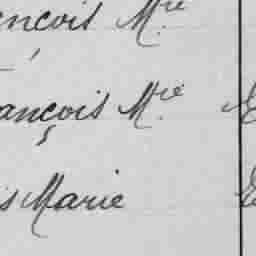 ençois M.rie
ançois M.rie
is Marie